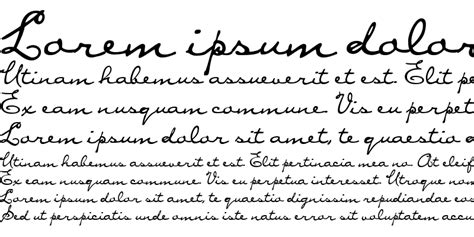 Lorem ipsum dolor
Utinam habemus assueverit et est. Elit pe
Ex eam nusquam commune. Vis eu perpetu
Lorem ipsum dolor sit amet, te quaestio d
Utinam habemus assueverit et est. Elit pertinacia mea no. At eleif
Ex eam nusquam commune. Vis eu perpetua interesset. Utroque non
Lorem ipsum dolor sit amet, te quaestio dignissim repudiandae eos
Sed ut perspiciatis unde omnis iste natus error sit voluptatem accusant